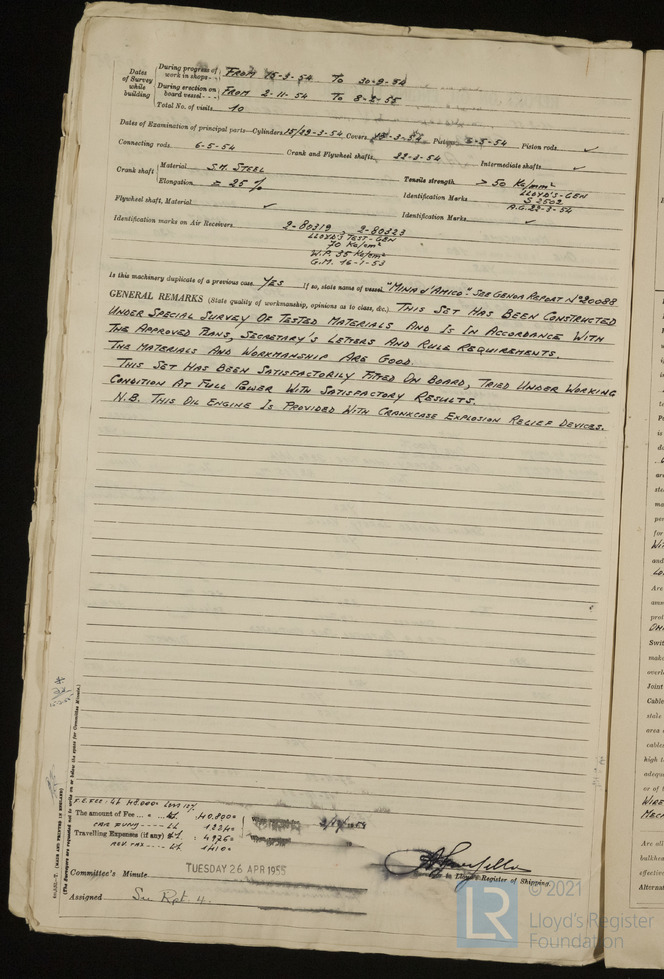 Dates of Survey while building
During progress of work in shops - - FROM 15-3-54 TO 20-9-54
During erection on board vessel - - - FROM 2-11-54 TO 8-2-55
Total No. of visits 40
Dates of Examination of principal parts—Cylinders 15/29-3-54 Covers 15-3-54 Pistons 5-5-54 Piston rods ✓
Connecting rods 6-5-54 Crank and Flywheel shafts 22-3-54 Intermediate shafts ✓
Crank shaft Material S.M. STEEL Tensile strength > 50 Kg/mm²
Elongation = 25 % Identification Marks LLOYD'S-GEN
S 2502
A.G. 22-3-54
Flywheel shaft, Material ✓ Identification Marks ✓
Identification marks on Air Receivers 2-80319 , 2-80323
LLOYD'S TEST - GEN
70 Kg/cm²
W.P. 35 Kg/cm²
G.M. 16-1-53
Is this machinery duplicate of a previous case YES If so, state name of vessel "MINA d'AMICO" SEE GENOA REPORT Nº 20088
GENERAL REMARKS (State quality of workmanship, opinions as to class, &c.) THIS SET HAS BEEN CONSTRUCTED
UNDER SPECIAL SURVEY OF TESTED MATERIALS AND IS IN ACCORDANCE WITH
THE APPROVED PLANS, SECRETARY'S LETTERS AND RULE REQUIREMENTS.
THE MATERIALS AND WORKMANSHIP ARE GOOD.
THIS SET HAS BEEN SATISFACTORILY FITTED ON BOARD, TRIED UNDER WORKING
CONDITION AT FULL POWER WITH SATISFACTORY RESULTS.
N.B. THIS OIL ENGINE IS PROVIDED WITH CRANKCASE EXPLOSION RELIEF DEVICES.
(MADE AND PRINTED IN ENGLAND)
(The Surveyors are requested not to write on or below the space for Committee Minute.)
The amount of Fee ... Lt. : 40.800=
Travelling Expenses (if any) Lt. : 4950=
to Lloyd's Register of Shipping.
Committee's Minute TUESDAY 26 APR 1955
Assigned See Rpt 4.
© 2021
Lloyd's Register
Foundation
LR